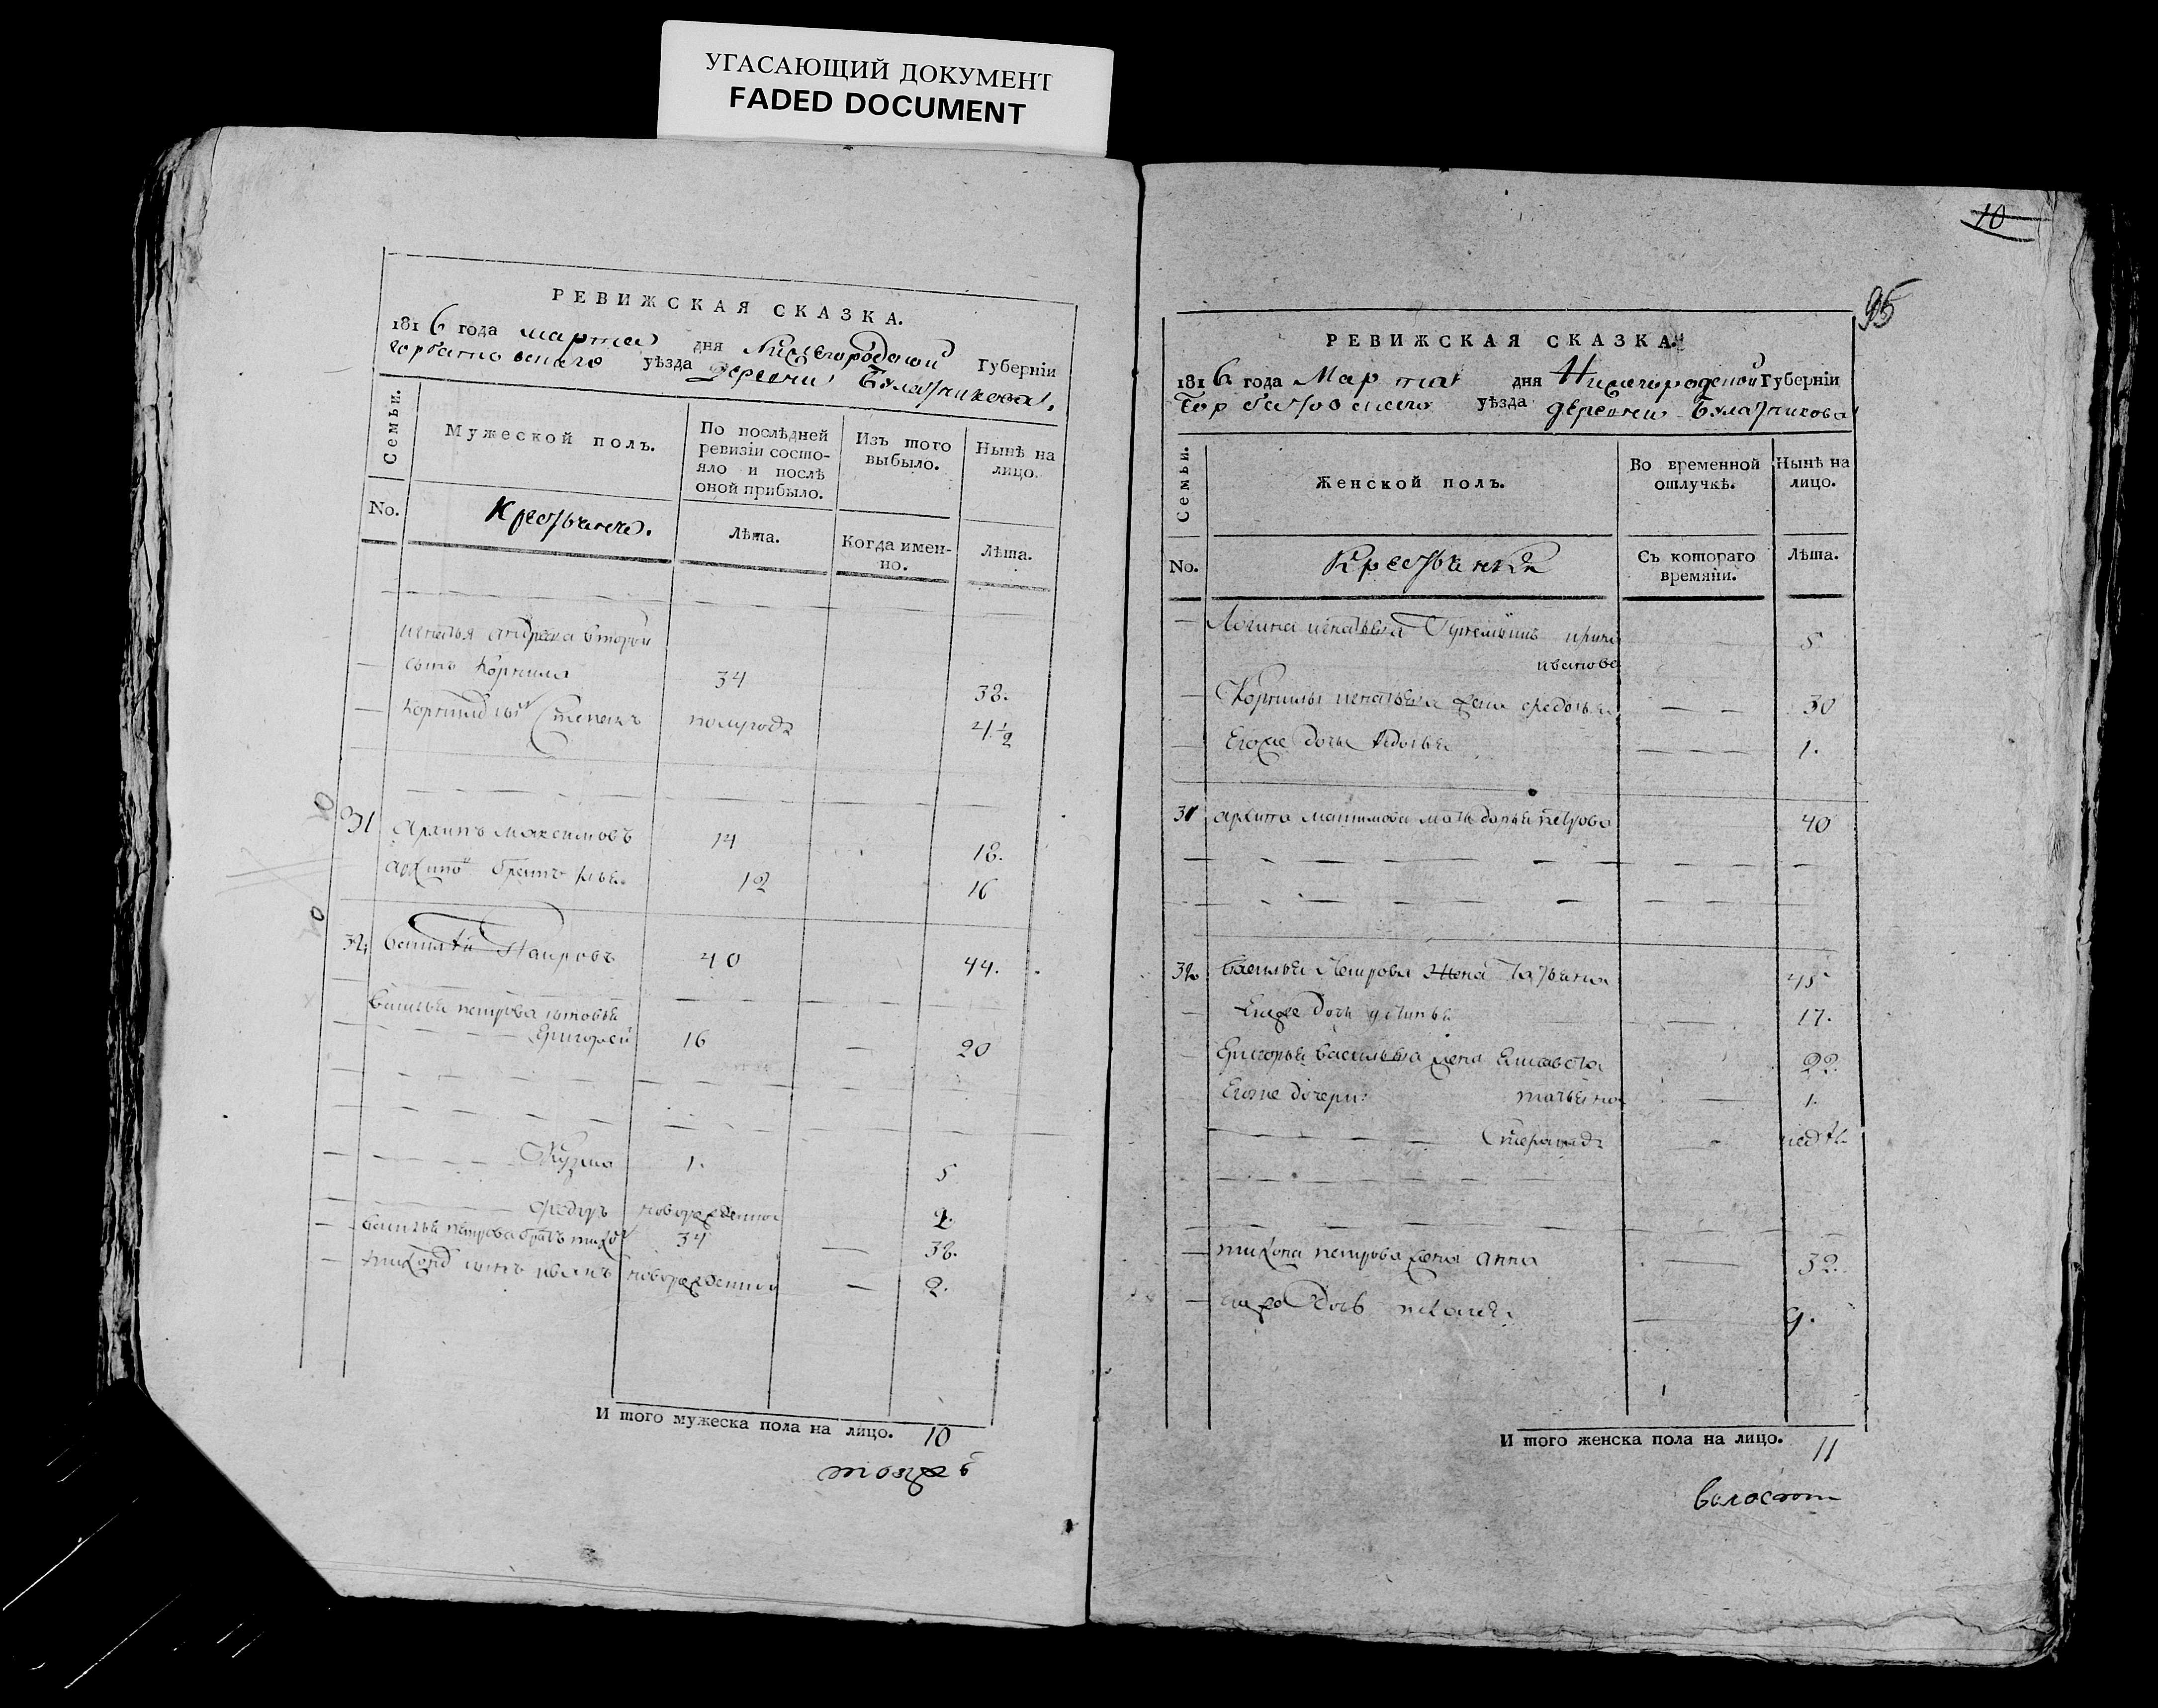 УГАСАЮЩИЙ ДОКУМЕНТ
FADED DOCUMENT
РЕВИЖСКАЯ СКАЗКА.
1816 года марта дня Нижегородской Губерніи
горбатовскаго уѣзда деревни Булатникова.
Семьи.
Мужеской полъ.
По послѣдней ревизіи состо-
яло и послѣ
оной прибыло.
Изъ того
выбыло.
Нынѣ на
лицо.
No.
Крестьяне.
Лѣта.
Когда имен-
но.
Лѣта.
игнатья андреева второй
сынъ Корнила 34 38.
Корнилы сынъ Степанъ полугода 4 1/2
31 Архипъ максимовъ 14 18.
архипа братъ илья 12 16
32 василей Петровъ 40 44.
василья петрова сыновья
Григорей 16 20
Кузма 1. 5
федоръ новорожденной 2.
василья петрова братъ тихонъ 34 38.
тихона сынъ иванъ новорожденной 2.
И того мужеска пола на лицо. 10
10
95
РЕВИЖСКАЯ СКАЗКА.
1816 года Марта дня Нижегородской Губерніи
Горбатовскаго уѣзда деревни Булатникова
Семьи.
Женской полъ.
Во временной
отлучкѣ.
Нынѣ на
лицо.
No.
Крестьянки
Съ котораго
времяни.
Лѣта.
Логина игнатьева 5
иванова
Корнилы игнатьева жена 30
Егоже дочь 1.
31 архипа максимова мать дарья петрова 40
32 Василья Петрова Жена татьяна 45
Егоже дочь устинья 17.
Григорья васильева жена Елисавета 22.
Егоже дочери татьяна 1.
Степанида недѣль
тихона петрова жена анна 32.
егоже дочь пелагея 9.
И того женска пола на лицо. 11